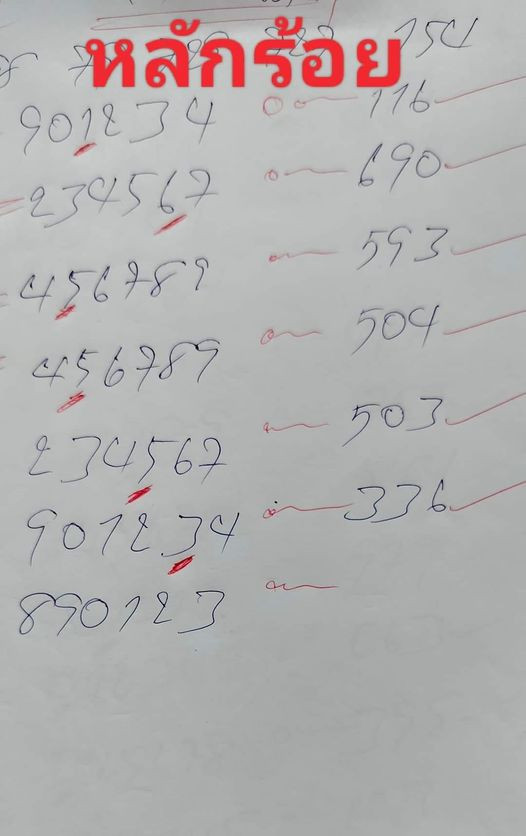 หลักร้อย
154
901234 116
234567 690
456789 593
456789 504
234567 503
901234 336
890123